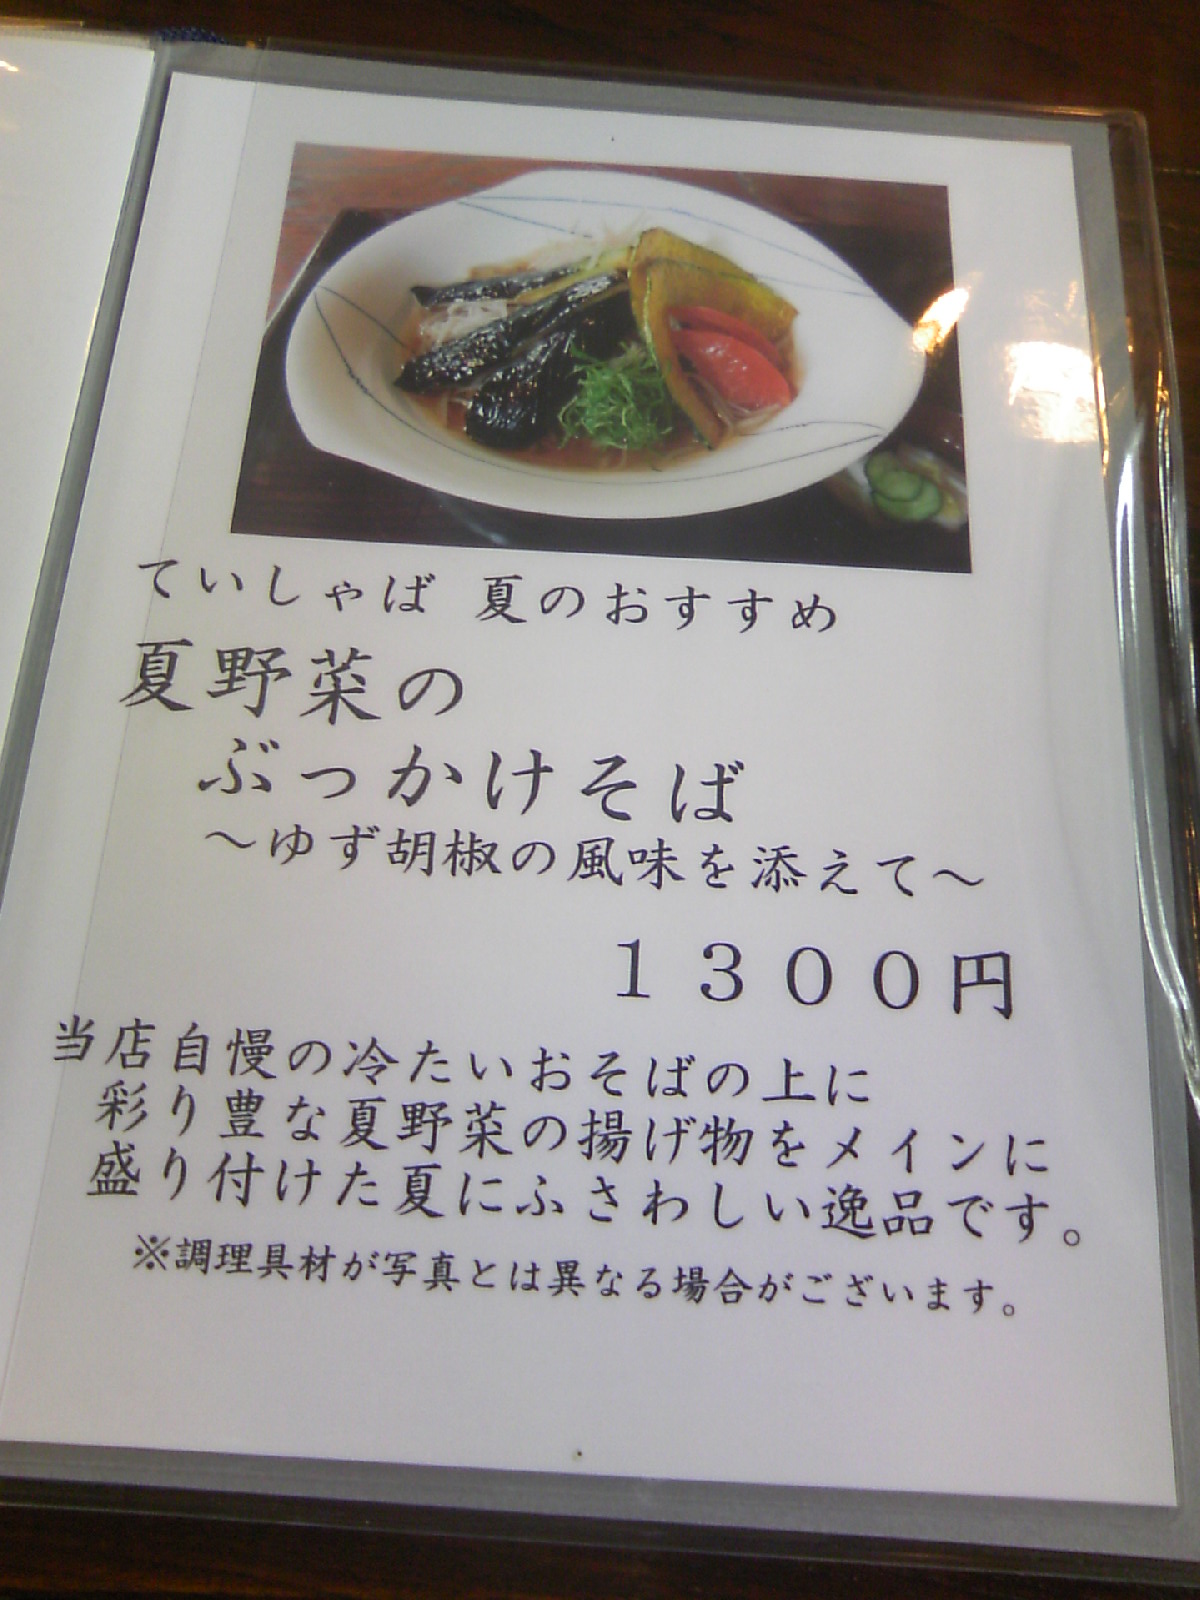 ていしゃば 夏のおすすめ
夏野菜の
ぶっかけそば
～ゆず胡椒の風味を添えて～
１３００円
当店自慢の冷たいおそばの上に
彩り豊な夏野菜の揚げ物をメインに
盛り付けた夏にふさわしい逸品です。
※調理具材が写真とは異なる場合がございます。